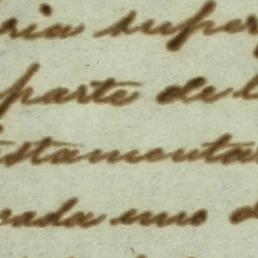 ria super
parte de l
stamenta
cada uno d